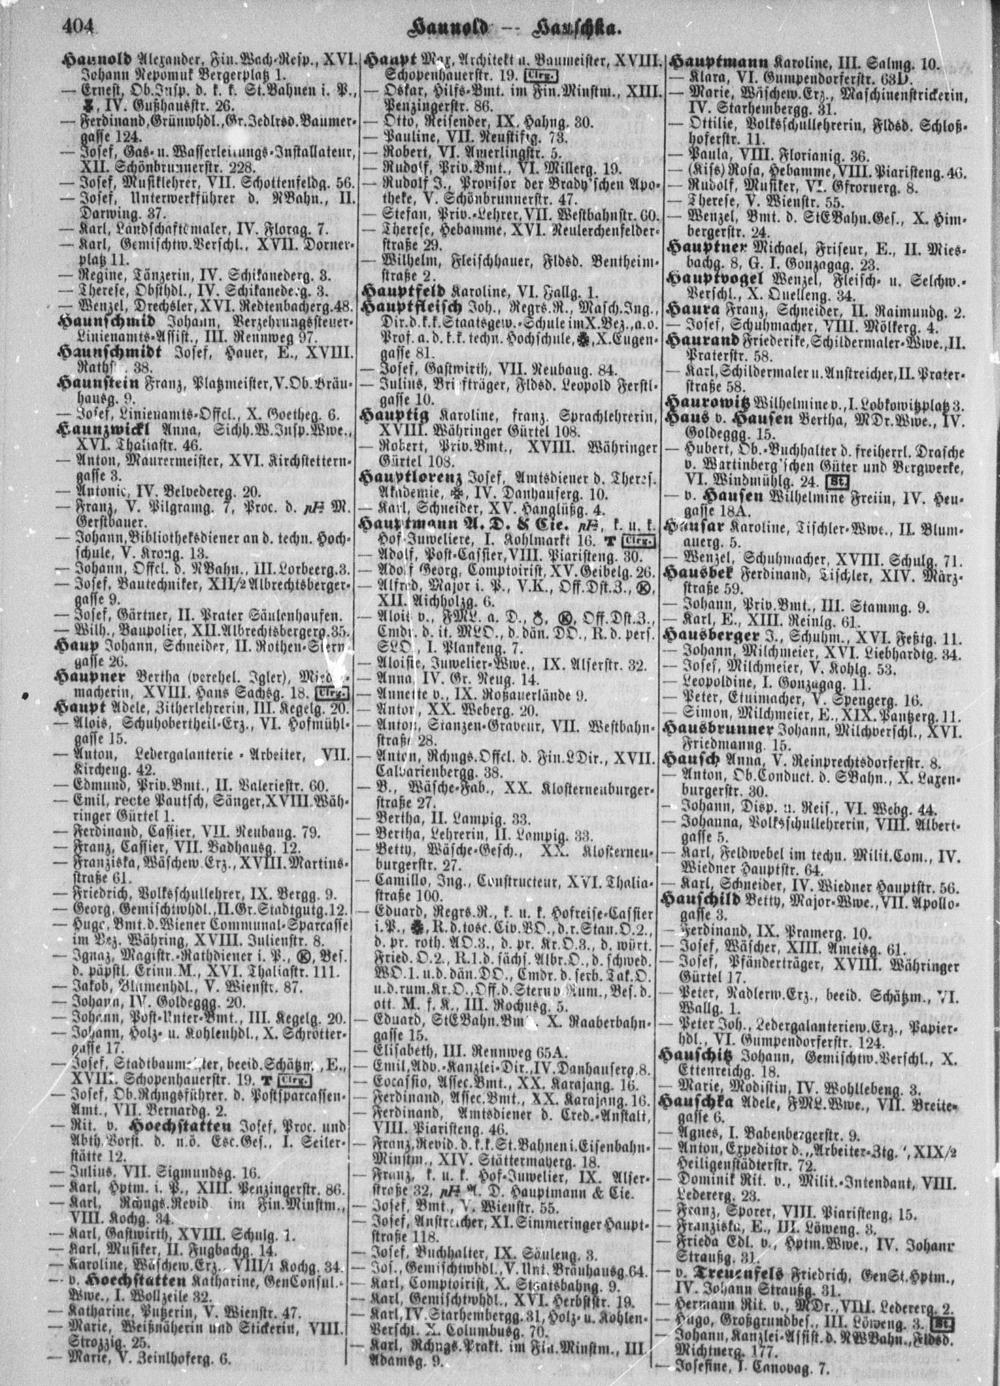 404
Haunold — Hauschka.
Haunold Alexander, Fin.Wach-Resp., XVI.
Johann Nepomuk Bergerplatz 1.
— Ernest, Ob.Insp. d. k. k. St.Bahnen i. P.,
IV. Gußhausstr. 26.
— Ferdinand, Grünwhdl., Gr.Jedlrsd.Baumer-
gasse 124.
— Josef, Gas- u. Wasserleitungs-Installateur,
XII. Schönbrunnerstr. 228.
— Josef, Musiklehrer, VII. Schottenfeldg. 56.
— Josef, Unterwerkführer d. NBahn., II.
Darwing. 37.
— Karl, Landschaftsmaler, IV. Florag. 7.
— Karl, Gemischtw.Verschl., XVII. Dorner-
platz 11.
— Regine, Tänzerin, IV. Schikanederg. 3.
— Therese, Obsthdl., IV. Schikanederg. 3.
— Wenzel, Drechsler, XVI. Redtenbacherg. 48.
Haunschmid Johann, Verzehrungssteuer-
Linienamts-Assist., III. Rennweg 97.
Haunschmidt Josef, Hauer, E., XVIII.
Rathstr. 38.
Haunstein Franz, Platzmeister, V. Ob.Bräu-
hausg. 9.
— Josef, Linienamts-Offcl., X. Goetheg. 6.
Haunzwickl Anna, Sichh.W.Insp.Wwe.,
XVI. Thaliastr. 46.
— Anton, Maurermeister, XVI. Kirchstettern-
gasse 3.
— Antonie, IV. Belvedereg. 20.
— Franz, V. Pilgramg. 7, Proc. d. M.
Gerstbauer.
— Johann, Bibliotheksdiener an d. techn. Hoch-
schule, V. Krong. 13.
— Johann, Offcl. d. NBahn., III. Lorbeerg. 3.
— Josef, Bautechniker, XII/2 Albrechtsberger-
gasse 9.
— Josef, Gärtner, II. Prater Säulenhaufen.
— Wilh., Baupolier, XII. Albrechtsbergerg. 35.
Haup Johann, Schneider, II. Rothen-Stern-
gasse 26.
Haupner Bertha (verehel. Igler), Mieder-
macherin, XVIII. Hans Sachsg. 18. Clrg.
Haupt Adele, Zitherlehrerin, III. Kegelg. 20.
— Alois, Schuhobertheil-Erz., VI. Hofmühl-
gasse 15.
— Anton, Ledergalanterie-Arbeiter, VII.
Kircheng. 42.
— Edmund, Priv.Bmt., II. Valeriestr. 60.
— Emil, recte Pautsch, Sänger, XVIII. Wäh-
ringer Gürtel 1.
— Ferdinand, Cassier, VII. Neubaug. 79.
— Franz, Cassier, VII. Badhausg. 12.
— Franziska, Wäschew.Erz., XVIII. Martins-
straße 61.
— Friedrich, Volksschullehrer, IX. Bergg. 9.
— Georg, Gemischtwhdl., II. Gr.Stadtgutg. 12.
— Hugo, Bmt. d. Wiener Communal-Sparcasse
im Bez. Währing, XVIII. Julienstr. 8.
— Ignaz, Magistr.-Rathdiener i. P., Bes.
d. päpstl. Erinn.M., XVI. Thaliastr. 111.
— Jakob, Blumenhdl., V. Wienstr. 87.
— Johann, IV. Goldeggg. 20.
— Johann, Post-Unter-Bmt., III. Kegelg. 20.
— Johann, Holz- u. Kohlenhdl., X. Schrötter-
gasse 17.
— Josef, Stadtbaumeister, beeid.Schätzm., E.,
XVIII. Schopenhauerstr. 19. T Clrg.
— Josef, Ob.Rchngsführer. d. Postsparcassen-
Amt., VII. Bernardg. 2.
— Rit. v. Hoechstatten Josef, Proc. und
Abth.Vorst. d. n.ö. Esc.Ges., I. Seiler-
stätte 12.
— Julius, VII. Sigmundsg. 16.
— Karl, Hptm. i. P., XIII. Penzingerstr. 86.
— Karl, Rchngs.Revid. im Fin.Minstm.,
VIII. Kochg. 34.
— Karl, Gastwirth, XVIII. Schulg. 1.
— Karl, Musiker, II. Fugbachg. 14.
— Karoline, Wäschew.Erz., VIII/1 Kochg. 34.
— v. Hoechstatten Katharine, GenConsul.-
Wwe., I. Wollzeile 32.
— Katharine, Putzerin, V. Wienstr. 47.
— Marie, Weißnäherin und Stickerin, VIII.
Strozzig. 25.
— Marie, V. Zeinlhoferg. 6.
Haupt Max, Architekt u. Baumeister, XVIII.
Schopenhauerstr. 19. Clrg.
— Oskar, Hilfs-Bmt. im Fin.Minstm., XIII.
Penzingerstr. 86.
— Otto, Reisender, IX. Hahng. 30.
— Pauline, VII. Neustiftg. 73.
— Robert, VI. Amerlingstr. 5.
— Rudolf, Priv.Bmt., VI. Millerg. 19.
— Rudolf J., Provisor der Brady'schen Apo-
theke, V. Schönbrunnerstr. 47.
— Stefan, Priv.-Lehrer, VII. Westbahnstr. 60.
— Therese, Hebamme, XVI. Neulerchenfelder-
straße 29.
— Wilhelm, Fleischhauer, Fldsd. Bentheim-
straße 2.
Hauptfeld Karoline, VI. Fallg. 1.
Hauptfleisch Joh., Regrs.R., Masch.Ing.,
Dir. d. k. k. Staatsgew.-Schule im X. Bez., a. o.
Prof. a. d. k. k. techn. Hochschule, X. Eugen-
gasse 81.
— Josef, Gastwirth, VII. Neubaug. 84.
— Julius, Briefträger, Fldsd. Leopold Ferstl-
gasse 10.
Hauptig Karoline, franz. Sprachlehrerin,
XVIII. Währinger Gürtel 108.
— Robert, Priv.Bmt., XVIII. Währinger
Gürtel 108.
Hauptlorenz Josef, Amtsdiener d. Theres.
Akademie, IV. Danhauserg. 10.
— Karl, Schneider, XV. Hanglüßg. 4.
Hauptmann A. D. & Cie. k. u. k.
Hof-Juweliere, I. Kohlmarkt 16. T Clrg.
— Adolf, Post-Cassier, VIII. Piaristeng. 30.
— Adolf Georg, Comptoirist, XV. Geibelg. 26.
— Alfred, Major i. P., V.K., Off.Dst.3.,
XII. Aichholzg. 6.
— Alois v., FML. a. D., Off.Dst.3.,
Cmdr. d. it. MLO., d. dän. DO., R. d. pers.
SLO., I. Plankeng. 7.
— Aloisie, Juwelier-Wwe., IX. Alserstr. 32.
— Anna, IV. Gr. Neug. 14.
— Annette v., IX. Roßauerlände 9.
— Anton, XX. Weberg. 20.
— Anton, Stanzen-Graveur, VII. Westbahn-
straße 28.
— Anton, Rchngs.Offcl. d. Fin.LDir., XVII.
Calvarienbergg. 38.
— B., Wäsche-Fab., XX. Klosterneuburger-
straße 27.
— Bertha, II. Lampig. 33.
— Bertha, Lehrerin, II. Lampig. 33.
— Betty, Wäsche-Gesch., XX. Klosterneu-
burgerstr. 27.
— Camillo, Ing., Constructeur, XVI. Thalia-
straße 100.
— Eduard, Regrs.R., k. u. k. Hofreise-Cassier
i. P., R. d. tosc. Civ.VO., d. r. Stan.O.2.,
d. pr. roth. AO.3., d. pr. Kr.O.3., d. würt.
Fried.O.2., R.1. d. sächs. Albr.O., d. schwed.
WO.1. u. d. dän. DO., Cmdr. d. serb. Tak.O.
u. d. rum. Kr.O., Off. d. Stern v. Rum., Bes. d.
ott. M. f. K., III. Rochusg. 5.
— Eduard, StEBahn.Bmt., X. Raaberbahn-
gasse 15.
— Elisabeth, III. Rennweg 65A.
— Emil, Adv.-Kanzlei-Dir., IV. Danhauserg. 8.
— Eocassio, Assec.Bmt., XX. Karajang. 16.
— Ferdinand, Assec.Bmt., XX. Karajang. 16.
— Ferdinand, Amtsdiener d. Cred.-Anstalt,
VIII. Piaristeng. 46.
— Franz, Revid. d. k. k. St.Bahnen i. Eisenbahn-
Minstm., XIV. Stättermayerg. 18.
— Franz, k. u. k. Hof-Juwelier, IX. Alser-
straße 32, A. D. Hauptmann & Cie.
— Josef, Bmt., V. Wienstr. 55.
— Josef, Anstreicher, XI. Simmeringer Haupt-
straße 118.
— Josef, Buchhalter, IX. Säuleng. 3.
— Jos., Gemischtwhdl., V. Unt. Bräuhausg. 64.
— Karl, Comptoirist, X. Staatsbahng. 9.
— Karl, Gemischtwhdl., XVI. Herbststr. 19.
— Karl, IV. Starhembergg. 31, Holz- u. Kohlen-
Verschl. X. Columbusg. 70.
— Karl, Rchngs.Prakt. im Fin.Minstm., III.
Adamsg. 9.
Hauptmann Karoline, III. Salmg. 10.
— Klara, VI. Gumpendorferstr. 63D.
— Marie, Wäschew.Erz., Maschinenstrickerin,
IV. Starhembergg. 31.
— Ottilie, Volksschullehrerin, Fldsd. Schloß-
hoferstr. 11.
— Paula, VIII. Florianig. 36.
— (Kiss) Rosa, Hebamme, VIII. Piaristeng. 46.
— Rudolf, Musiker, VI. Gfrornerg. 8.
— Therese, V. Wienstr. 55.
— Wenzel, Bmt. d. StEBahn.Ges., X. Him-
bergerstr. 24.
Hauptner Michael, Friseur, E., II. Mies-
bachg. 8, G. I. Gonzagag. 23.
Hauptvogel Wenzel, Fleisch- u. Selchw.-
Verschl., X. Quelleng. 34.
Haura Franz, Schneider, II. Raimundg. 2.
— Josef, Schuhmacher, VIII. Mölkerg. 4.
Haurand Friederike, Schildermaler-Wwe., II.
Praterstr. 58.
— Karl, Schildermaler u. Anstreicher, II. Prater-
straße 58.
Haurowitz Wilhelmine v., I. Lobkowitzplatz 3.
Haus v. Hausen Bertha, MDr.Wwe., IV.
Goldeggg. 15.
— Hubert, Ob.-Buchhalter d. freiherrl. Drasche
v. Wartinberg'schen Güter und Bergwerke,
VI. Windmühlg. 24. St.
— v. Hausen Wilhelmine Freiin, IV. Heu-
gasse 18A.
Hausar Karoline, Tischler-Wwe., II. Blum-
auerg. 5.
— Wenzel, Schuhmacher, XVIII. Schulg. 71.
Hausbek Ferdinand, Tischler, XIV. März-
straße 59.
— Johann, Priv.Bmt., III. Stammg. 9.
— Karl, E., XIII. Reinlg. 61.
Hausberger J., Schuhm., XVI. Feßtg. 11.
— Johann, Milchmeier, XVI. Liebhardtg. 34.
— Josef, Milchmeier, V. Kohlg. 53.
— Leopoldine, I. Gonzagag. 11.
— Peter, Etuimacher, V. Spengerg. 16.
— Simon, Milchmeier, E., XIX. Pantzerg. 11.
Hausbrunner Johann, Milchverschl., XVI.
Friedmanng. 15.
Hausch Anna, V. Reinprechtsdorferstr. 8.
— Anton, Ob.Conduct. d. SBahn., X. Laxen-
burgerstr. 30.
— Johann, Disp. u. Reis., VI. Webg. 44.
— Johanna, Volksschullehrerin, VIII. Albert-
gasse 5.
— Karl, Feldwebel im techn. Milit.Com., IV.
Wiedner Hauptstr. 64.
— Karl, Schneider, IV. Wiedner Hauptstr. 56.
Hauschild Betty, Major-Wwe., VII. Apollo-
gasse 3.
— Ferdinand, IX. Pramerg. 10.
— Josef, Wäscher, XIII. Ameisg. 61.
— Josef, Pfänderträger, XVIII. Währinger
Gürtel 17.
— Peter, Nadlerw.Erz., beeid. Schätzm., VI.
Wallg. 1.
— Peter Joh., Ledergalanteriew.Erz., Papier-
hdl., VI. Gumpendorferstr. 124.
Hauschitz Johann, Gemischtw.Verschl., X.
Ettenreichg. 18.
— Marie, Modistin, IV. Wohllebeng. 3.
Hauschka Adele, FML.Wwe., VII. Breite-
gasse 6.
— Agnes, I. Babenbergerstr. 9.
— Anton, Expeditor d. „Arbeiter-Ztg.", XIX/2
Heiligenstädterstr. 72.
— Dominik Rit. v., Milit.-Intendant, VIII.
Ledererg. 23.
— Franz, Sporer, VIII. Piaristeng. 15.
— Franziska, E., III. Löweng. 3.
— Frieda Edl. v., Hptm.Wwe., IV. Johann
Straußg. 31.
— v. Treuenfels Friedrich, GenSt.Hptm.,
IV. Johann Straußg. 31.
— Hermann Rit. v., MDr., VIII. Ledererg. 2.
— Hugo, Großgrundbes., III. Löweng. 3. St.
— Johann, Kanzlei-Assist. d. NWBahn., Fldsd.
Michtnerg. 177.
— Josefine, I. Canovag. 7.